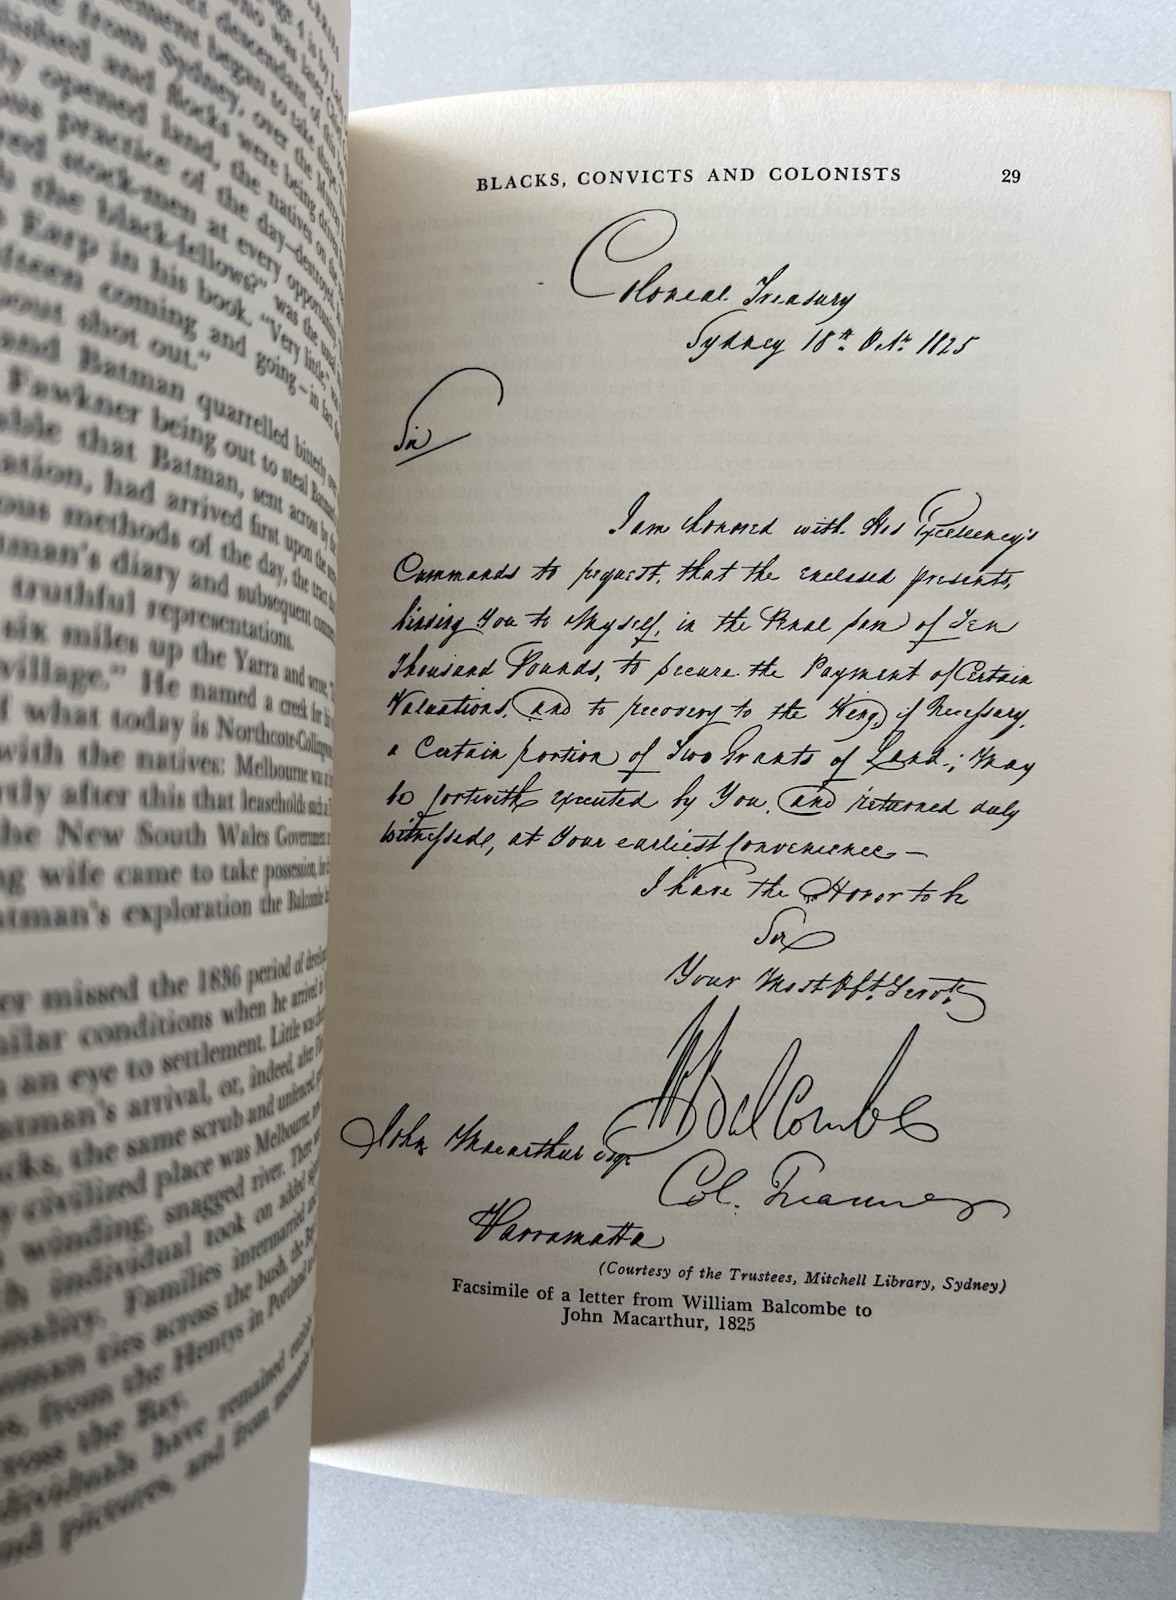 was later
descendant of this
ement began to take shape.
from Sydney, over the
ished and flocks were being driven
opened land, the natives on the
ous practice of the day—destroyed.
stock-men at every opportunity.
the black-fellows?" was the usual
Earp in his book. "Very little," was
fteen coming and going—in fact the
bout shot out."
and Batman quarrelled bitterly over
Fawkner being out to steal Batman's
able that Batman, sent across by the
ation, had arrived first upon the
ous methods of the day, the tract
tman's diary and subsequent
truthful representations.
six miles up the Yarra and wrote,
village." He named a creek for his
f what today is Northcote-Collingwood
with the natives: Melbourne was
rtly after this that leaseholds such as
he New South Wales Government
ng wife came to take possession, in
atman's exploration the Balcombe
er missed the 1836 period of
milar conditions when he arrived in
an eye to settlement. Little was
atman's arrival, or, indeed, after
cks, the same scrub and unfenced
y civilized place was Melbourne,
winding, snagged river. There
h individual took on added
onality. Families intermarried and
ties across the bush, the
s, from the Hentys in Portland
ross the Bay.
dividuals have remained
nd pictures, and from
BLACKS, CONVICTS AND COLONISTS 29
Colonial Treasury
Sydney 18th Octr. 1825
Sir
I am honored with His Excellency's
Commands to request, that the enclosed presents,
binding You to Myself, in the Penal Sum of Ten
Thousand Pounds, to secure the Payment of Certain
Valuations, and to recovery to the King, if Necessary,
a Certain portion of Two Grants of Land; May
be fortwith executed by You, and returned duly
witnessed, at Your earliest Convenience—
I have the Honor to be
Sir
Your Most Obt. Servt.
W Balcombe
John Macarthur Esqr.
Col. Treasurer
Parramatta
(Courtesy of the Trustees, Mitchell Library, Sydney)
Facsimile of a letter from William Balcombe to
John Macarthur, 1825